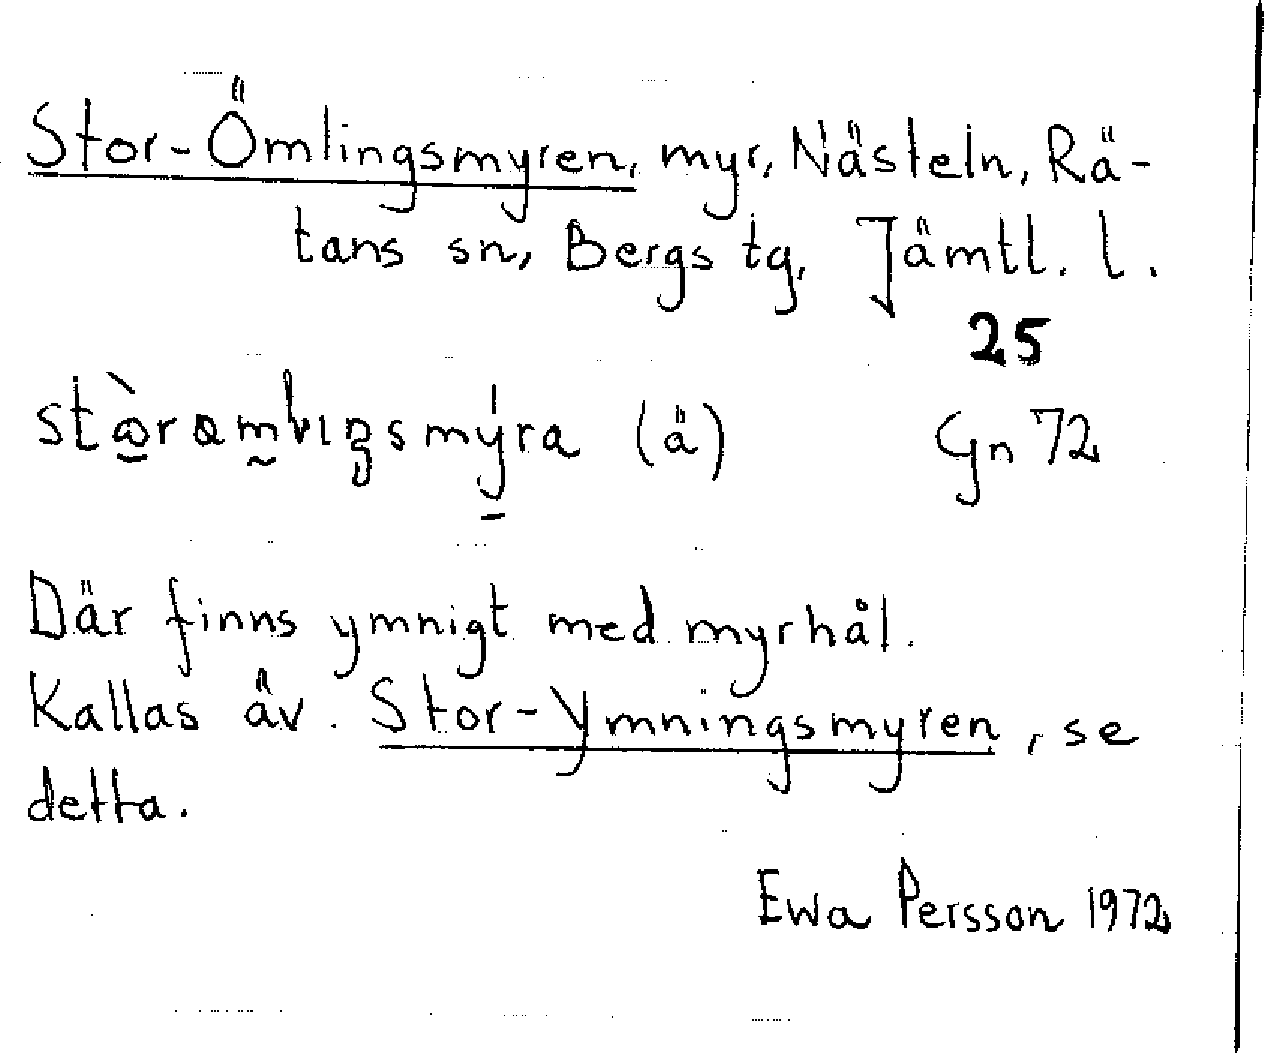 Stor-Ömlingsmyren, myr, Nästeln, Rä-
tans sn, Bergs tg, Jämtl. l.
25
(ä) Gn 72
Där finns ymnigt med myrhål.
Kallas äv. Stor-Ymningsmyren, se
detta.
Ewa Persson 1972